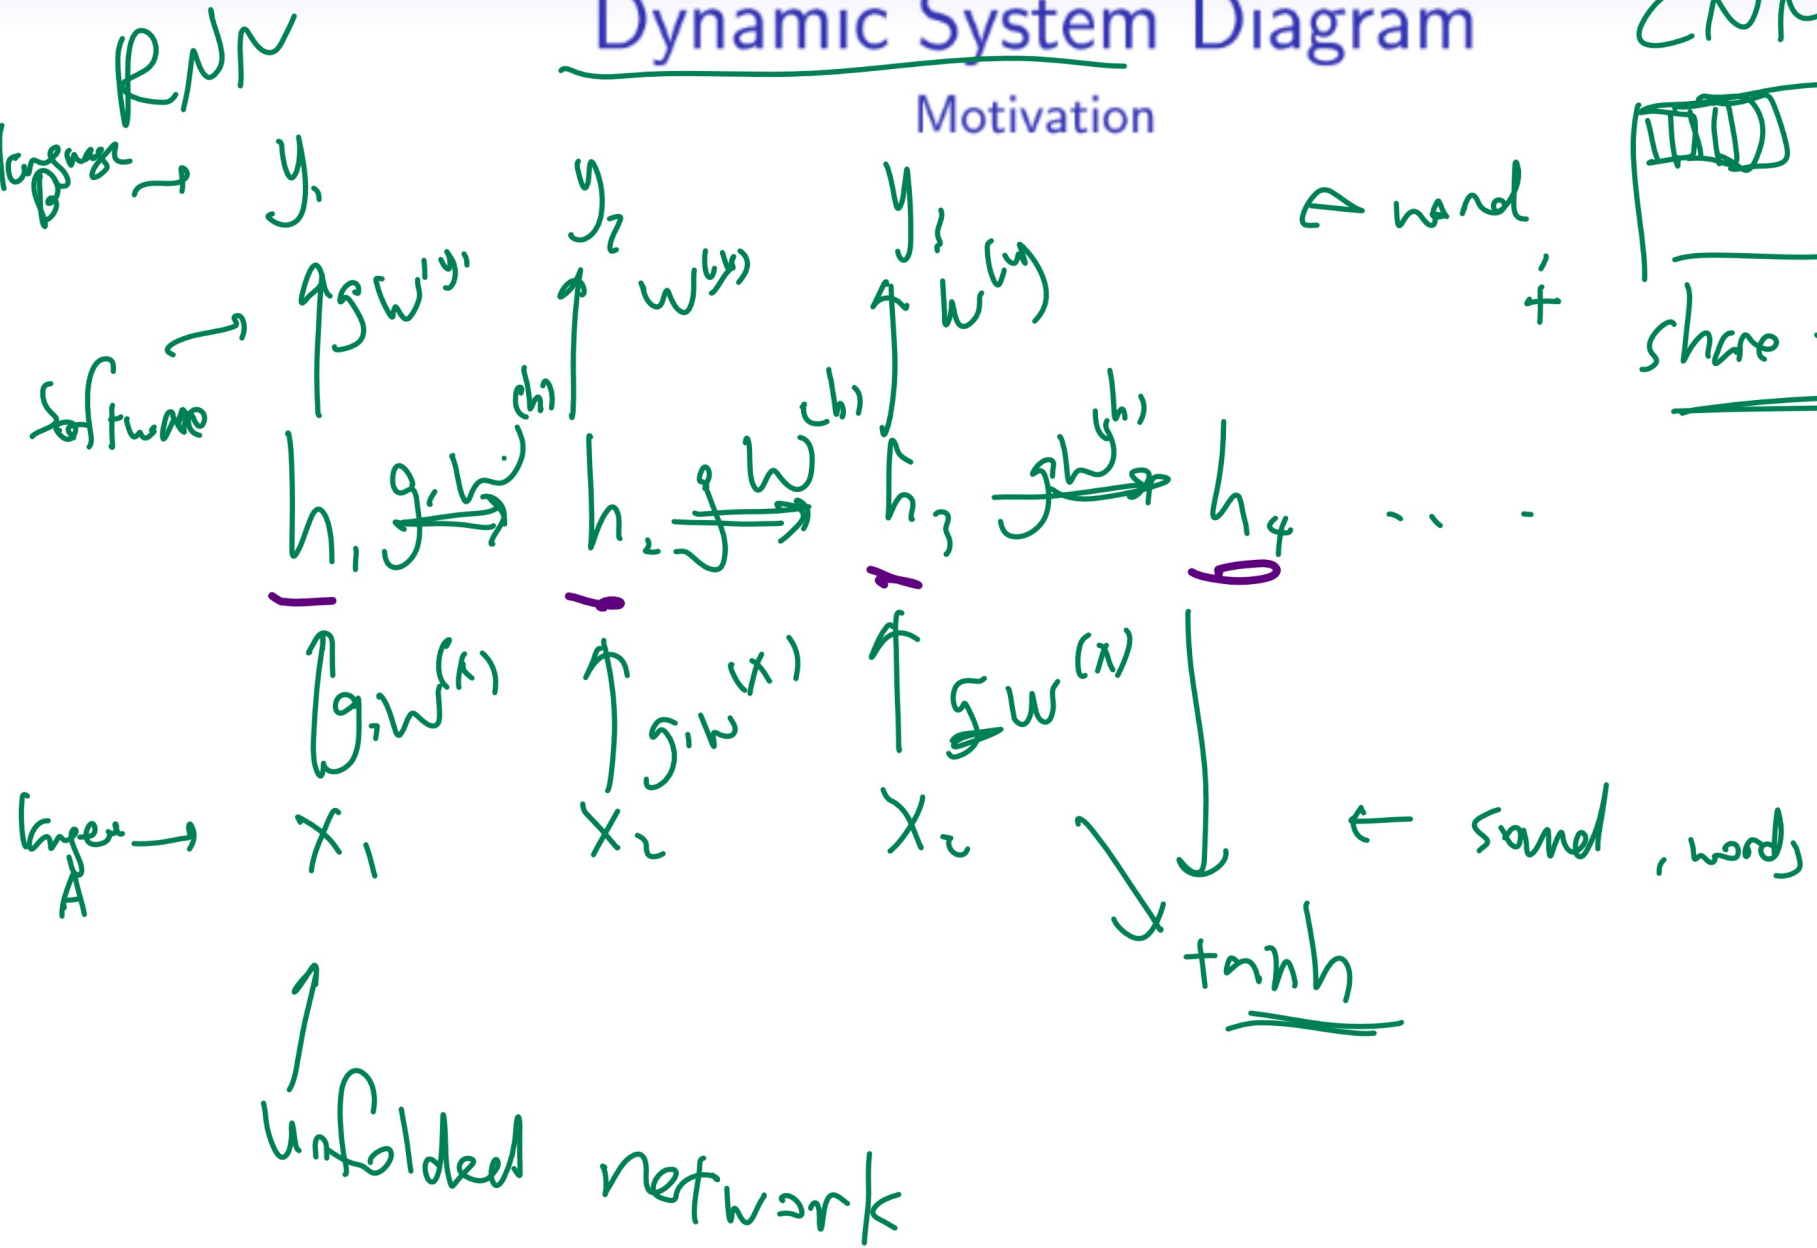 Dynamic System Diagram
RNN
CNN
Motivation
language B → y₁ y₂ y₃ ← word
+
share
Software → g W⁽ʸ⁾ W⁽ʸ⁾ W⁽ʸ⁾
h₁ g, W⁽ʰ⁾ h₂ g W⁽ʰ⁾ h₃ g W⁽ʰ⁾ h₄ ...
g, W⁽ˣ⁾ g, W⁽ˣ⁾ g W⁽ˣ⁾
A → x₁ x₂ x₂ ← sound, words
tanh
unfolded network